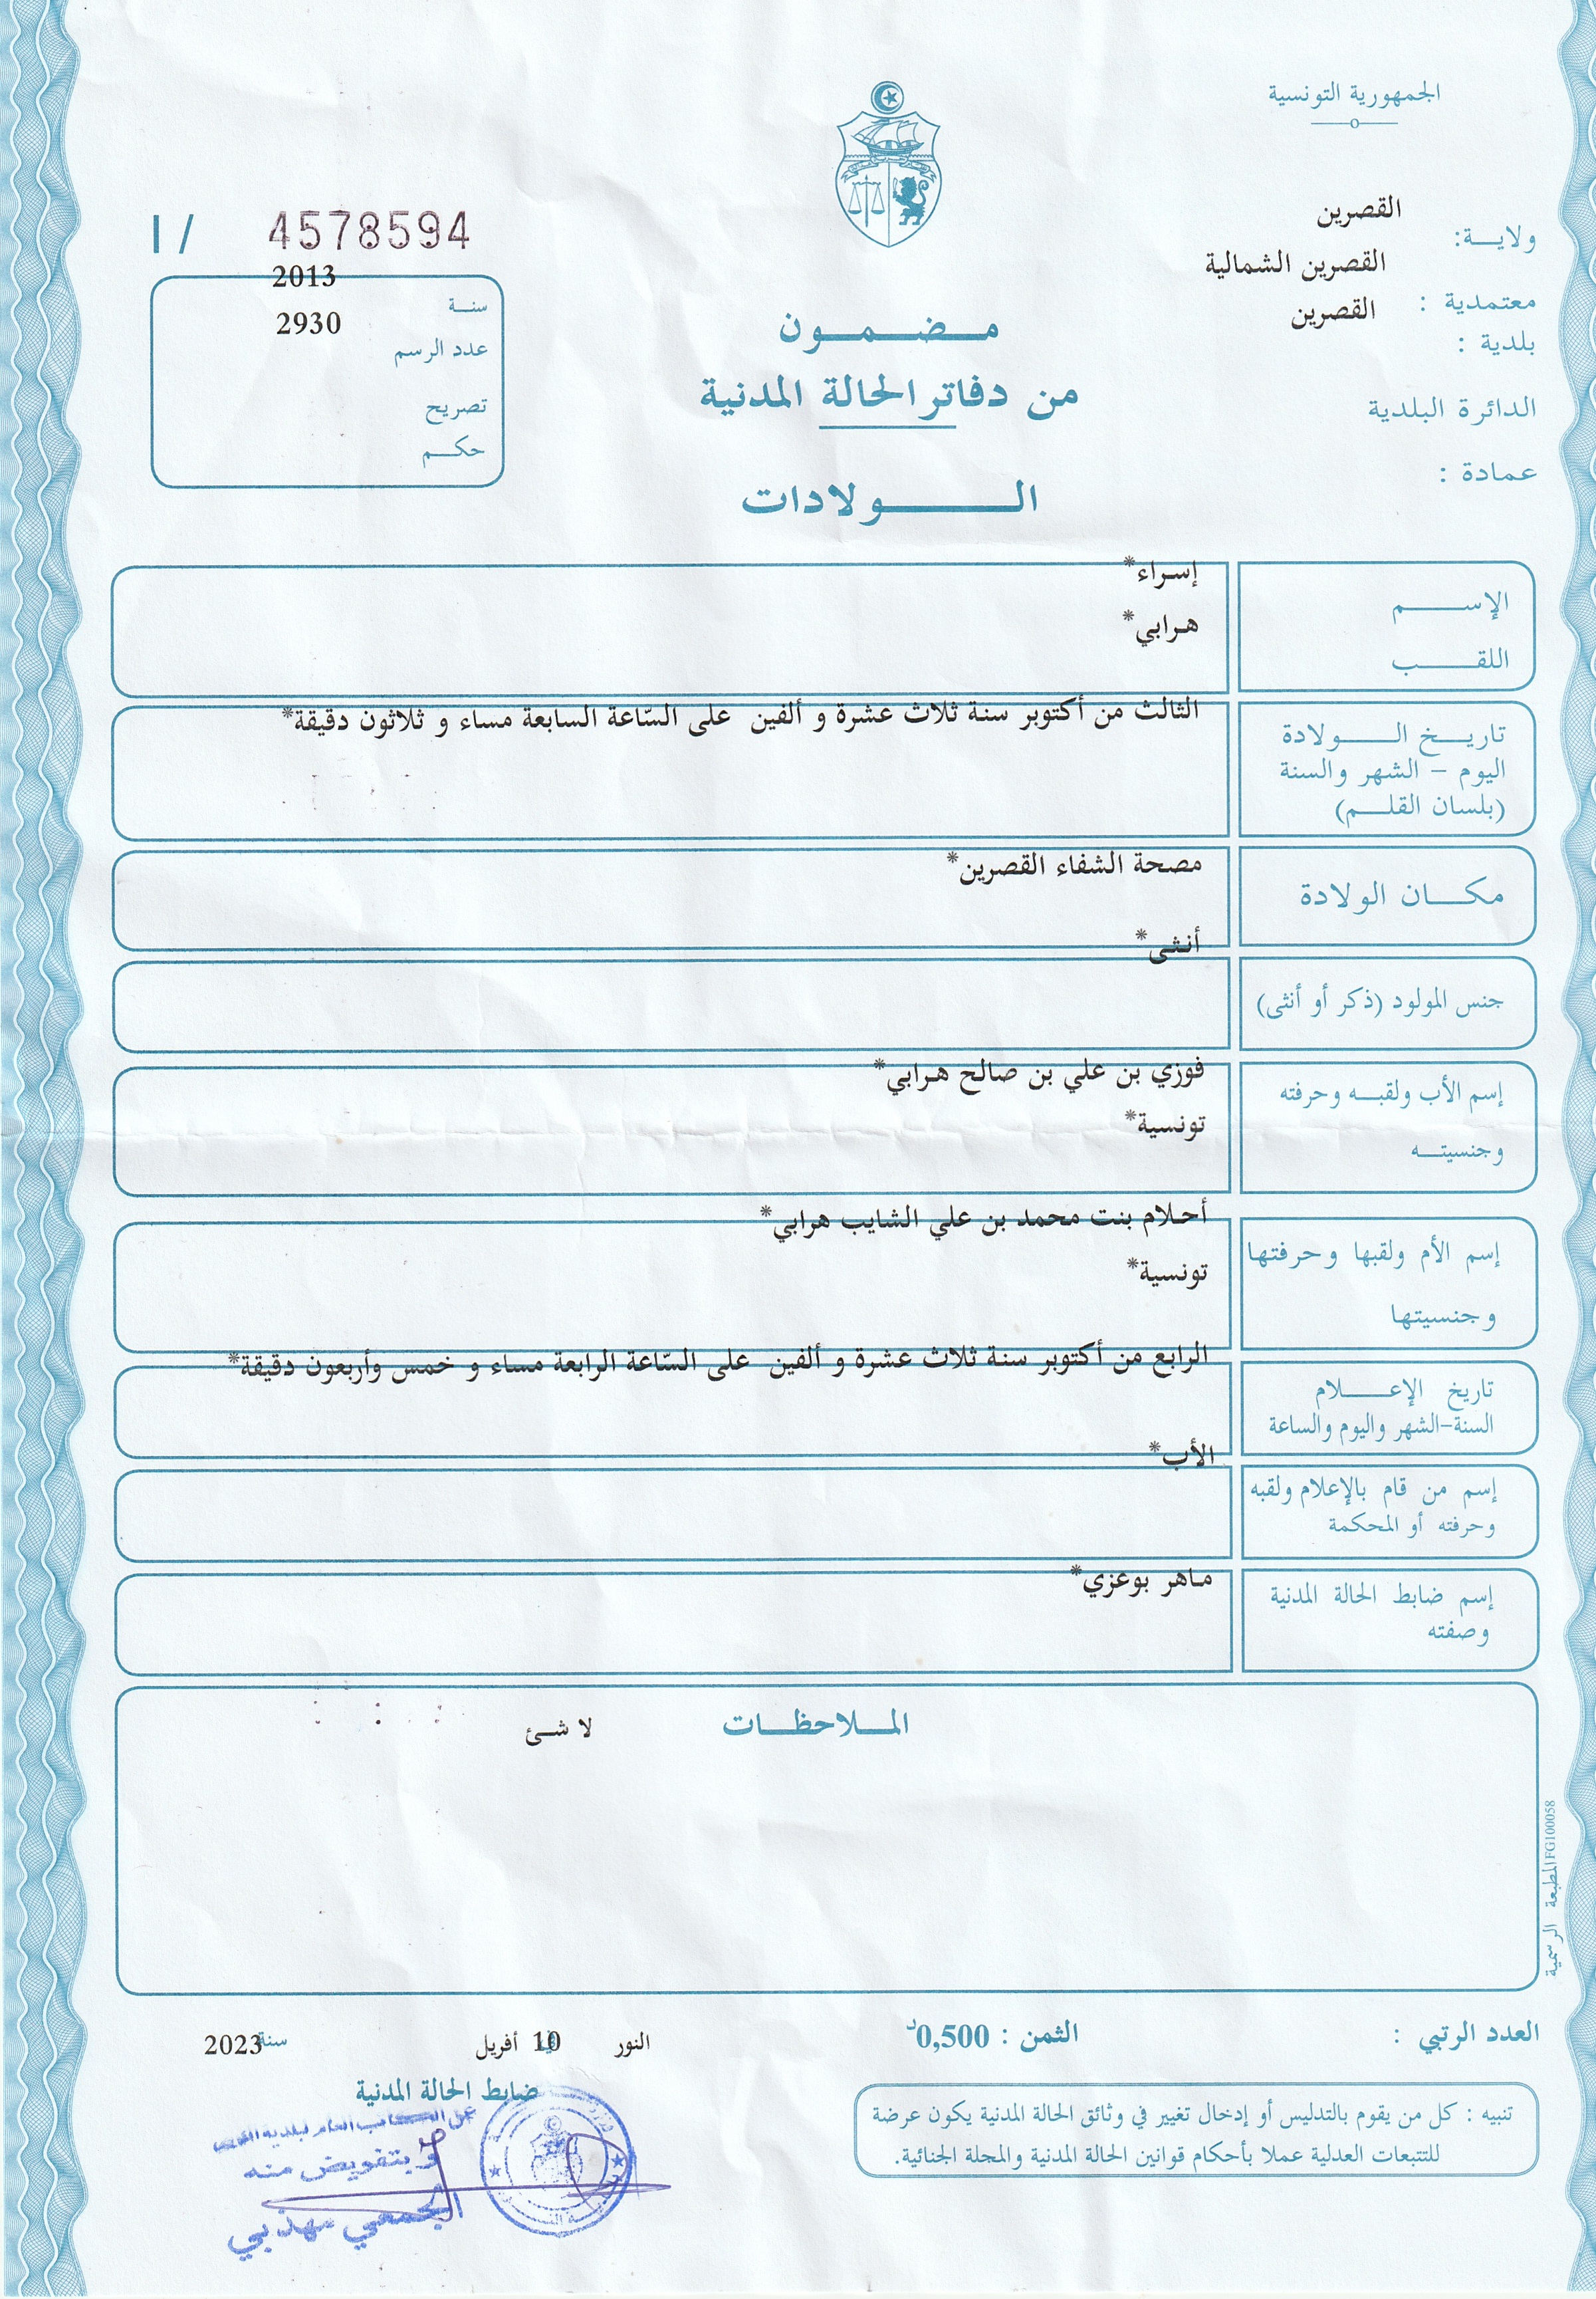 الجمهورية التونسية
ولاية: القصرين
معتمدية : القصرين الشمالية
بلدية : القصرين
الدائرة البلدية
عمادة :
I / 4578594
سنة 2013
عدد الرسم 2930
تصريح
حكم
مضمون
من دفاتر الحالة المدنية
الولادات
الإسم إسراء*
اللقب هرابي*
تاريخ الولادة
اليوم – الشهر والسنة
(بلسان القلم)
الثالث من أكتوبر سنة ثلاث عشرة و ألفين على السّاعة السابعة مساء و ثلاثون دقيقة*
مكان الولادة مصحة الشفاء القصرين*
جنس المولود (ذكر أو أنثى) أنثى*
إسم الأب ولقبه وحرفته فوزي بن علي بن صالح هرابي*
وجنسيته تونسية*
إسم الأم ولقبها وحرفتها أحلام بنت محمد بن علي الشايب هرابي*
وجنسيتها تونسية*
تاريخ الإعلام
السنة-الشهر واليوم والساعة
الرابع من أكتوبر سنة ثلاث عشرة و ألفين على السّاعة الرابعة مساء و خمس وأربعون دقيقة*
إسم من قام بالإعلام ولقبه
وحرفته أو المحكمة
الأب*
إسم ضابط الحالة المدنية
وصفته
ماهر بوعزي*
الملاحظات لا شئ
المطبعة الرسمية FG100058
العدد الرتبي :
الثمن : 0,500د
النور في 10 أفريل سنة 2023
ضابط الحالة المدنية
وبتفويض منه
الجمعي مهذبي
تنبيه : كل من يقوم بالتدليس أو إدخال تغيير في وثائق الحالة المدنية يكون عرضة
للتتبعات العدلية عملا بأحكام قوانين الحالة المدنية والمجلة الجنائية.